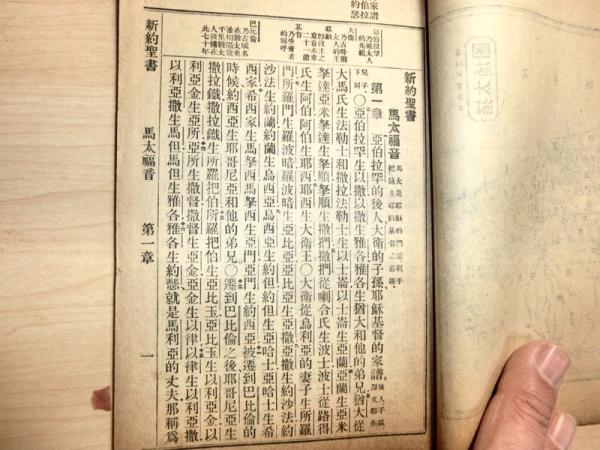 家譜
伯拉
約瑟
新約聖書
馬太福音
第一章 亞伯拉罕的後人大衛的子孫耶穌基督的家譜
○亞伯拉罕生以撒以撒生雅各雅各生猶大和他的弟兄猶大從
大馬氏生法勒士和撒拉法勒士生以士崙以士崙生亞蘭亞蘭生亞米
拏達亞米拏達生拏順拏順生撒捫撒捫從喇合氏生波士波士從路得
氏生阿伯阿伯生耶西耶西生大衛王○大衛從烏利亞的妻子生所羅
門所羅門生羅波暗羅波暗生亞比亞亞比亞生亞撒亞撒生約沙法約
沙法生約蘭約蘭生烏西亞烏西亞生約但約但生亞哈士亞哈士生希
西家希西家生馬拏西馬拏西生亞們亞們生約西亞被遷到巴比倫的
時候約西亞生耶哥尼亞和他的弟兄○遷到巴比倫之後耶哥尼亞生
撒拉鐵撒拉鐵生所羅把伯所羅把伯生亞比玉亞比玉生以利亞金以
利亞金生亞所亞所生撒督撒督生亞金亞金生以律以律生以利亞撒
以利亞撒生馬但馬但生雅各雅各生約瑟就是馬利亞的丈夫那稱為
亞伯拉罕
基督
巴比倫
新約聖書 馬太福音 第一章 一